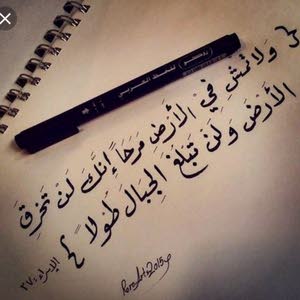 { وَلَا تَمْشِ فِي الْأَرْضِ مَرَحًا إِنَّكَ لَنْ تَخْرِقَ
الْأَرْضَ وَلَنْ تَبْلُغَ الْجِبَالَ طُولًا }
الإسراء: ٣٧